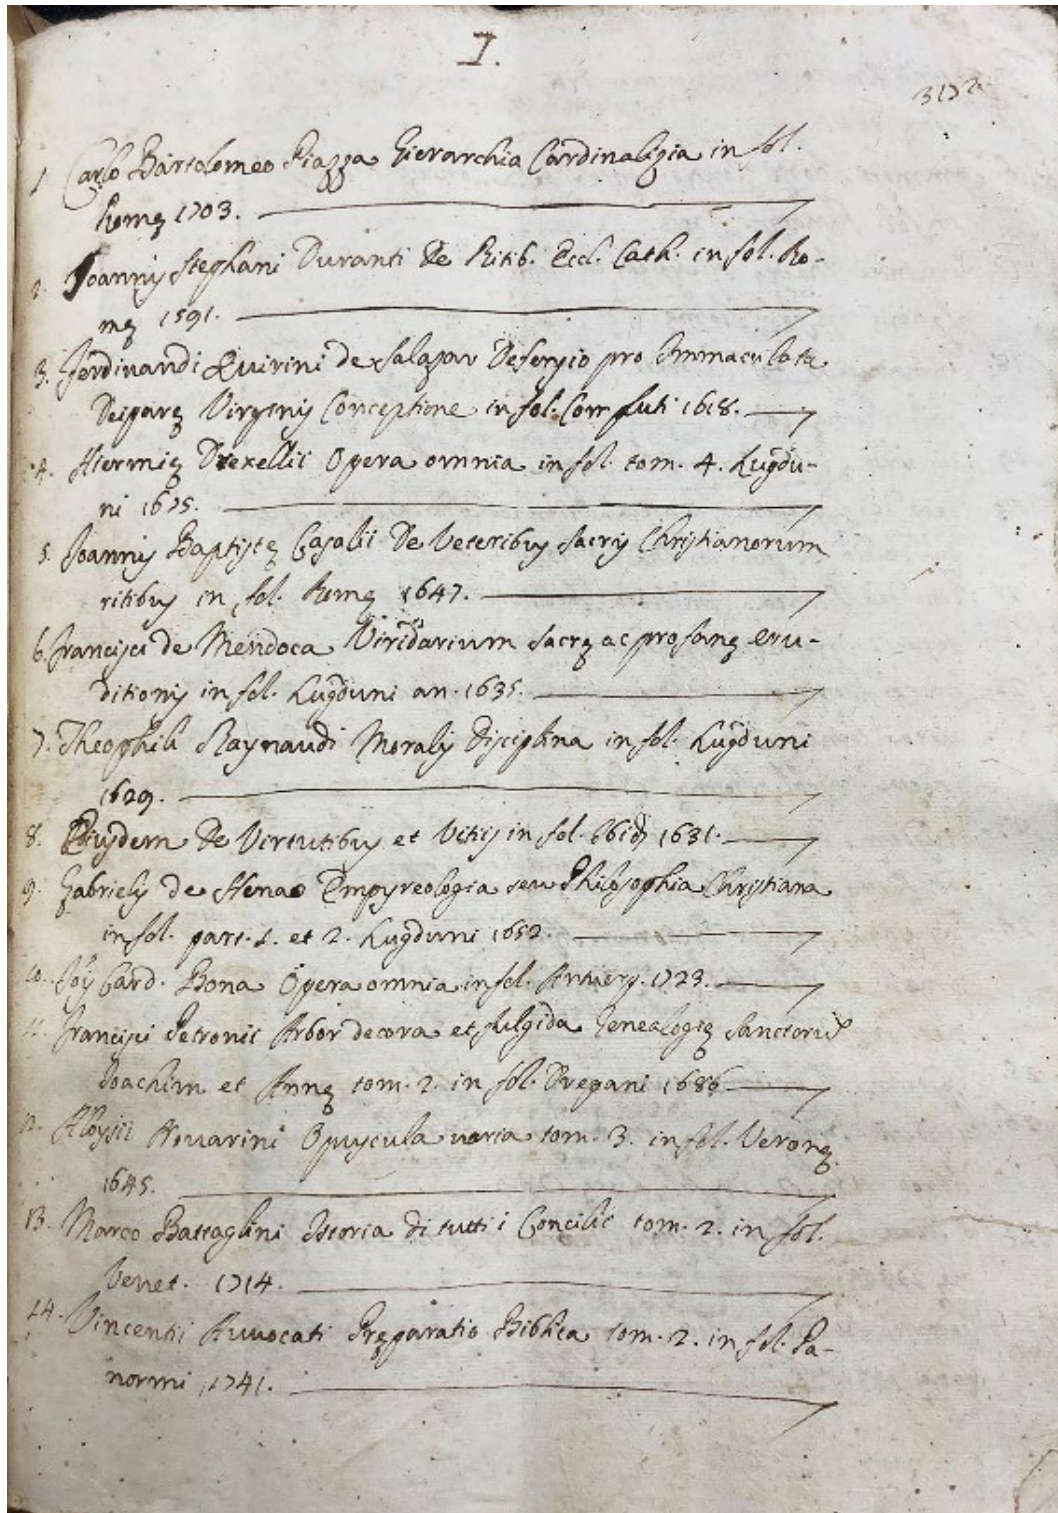 I.
3172
1 Carlo Bartolomeo Piazza Gierarchia Cardinalizia in fol.
Romę 1703.
2. Joannis Stephani Duranti De Ritib. Eccl. Cath. in fol. Ro-
mę 1591.
3. Ferdinandi Quirini de Salazar Defensio pro Immaculata
Deiparę Virginis Conceptione in fol. Compluti 1618.
4. Hiermię Drexellii Opera omnia in fol. tom. 4. Lugdu-
ni 1675.
5. Joannis Baptistę Casalii De Veteribus Sacris Christianorum
ritibus in fol. Romę 1647.
6. Francisci de Mendoca Viridarium Sacrę ac profanę eru-
ditionis in fol. Lugduni an. 1635.
7. Theophili Raynaudi Moralis Disciplina in fol. Lugduni
1629.
8. Eiusdem De Virtutibus et Vitiis in fol. Ibid 1631.
9. Gabrielis de Henao Empyreologia seu Philosophia Christiana
in fol. part. 1. et 2. Lugduni 1652.
10. Jois Card. Bona Opera omnia in fol. Antuerp. 1723.
11. Francisci Petronii Arbor decora et fulgida Genealogię Sanctorũ
Joachim et Annę tom. 2. in fol. Drepani 1686
12. Aloysii Novarini Opuscula varia tom. 3. in fol. Veronę
1645.
13. Marco Battaglini Istoria di tutti i Concilii tom. 2. in fol.
Venet. 1714.
14. Vincentii Auuocati Pręparatio Biblica tom. 2. in fol. Pa-
normi 1741.